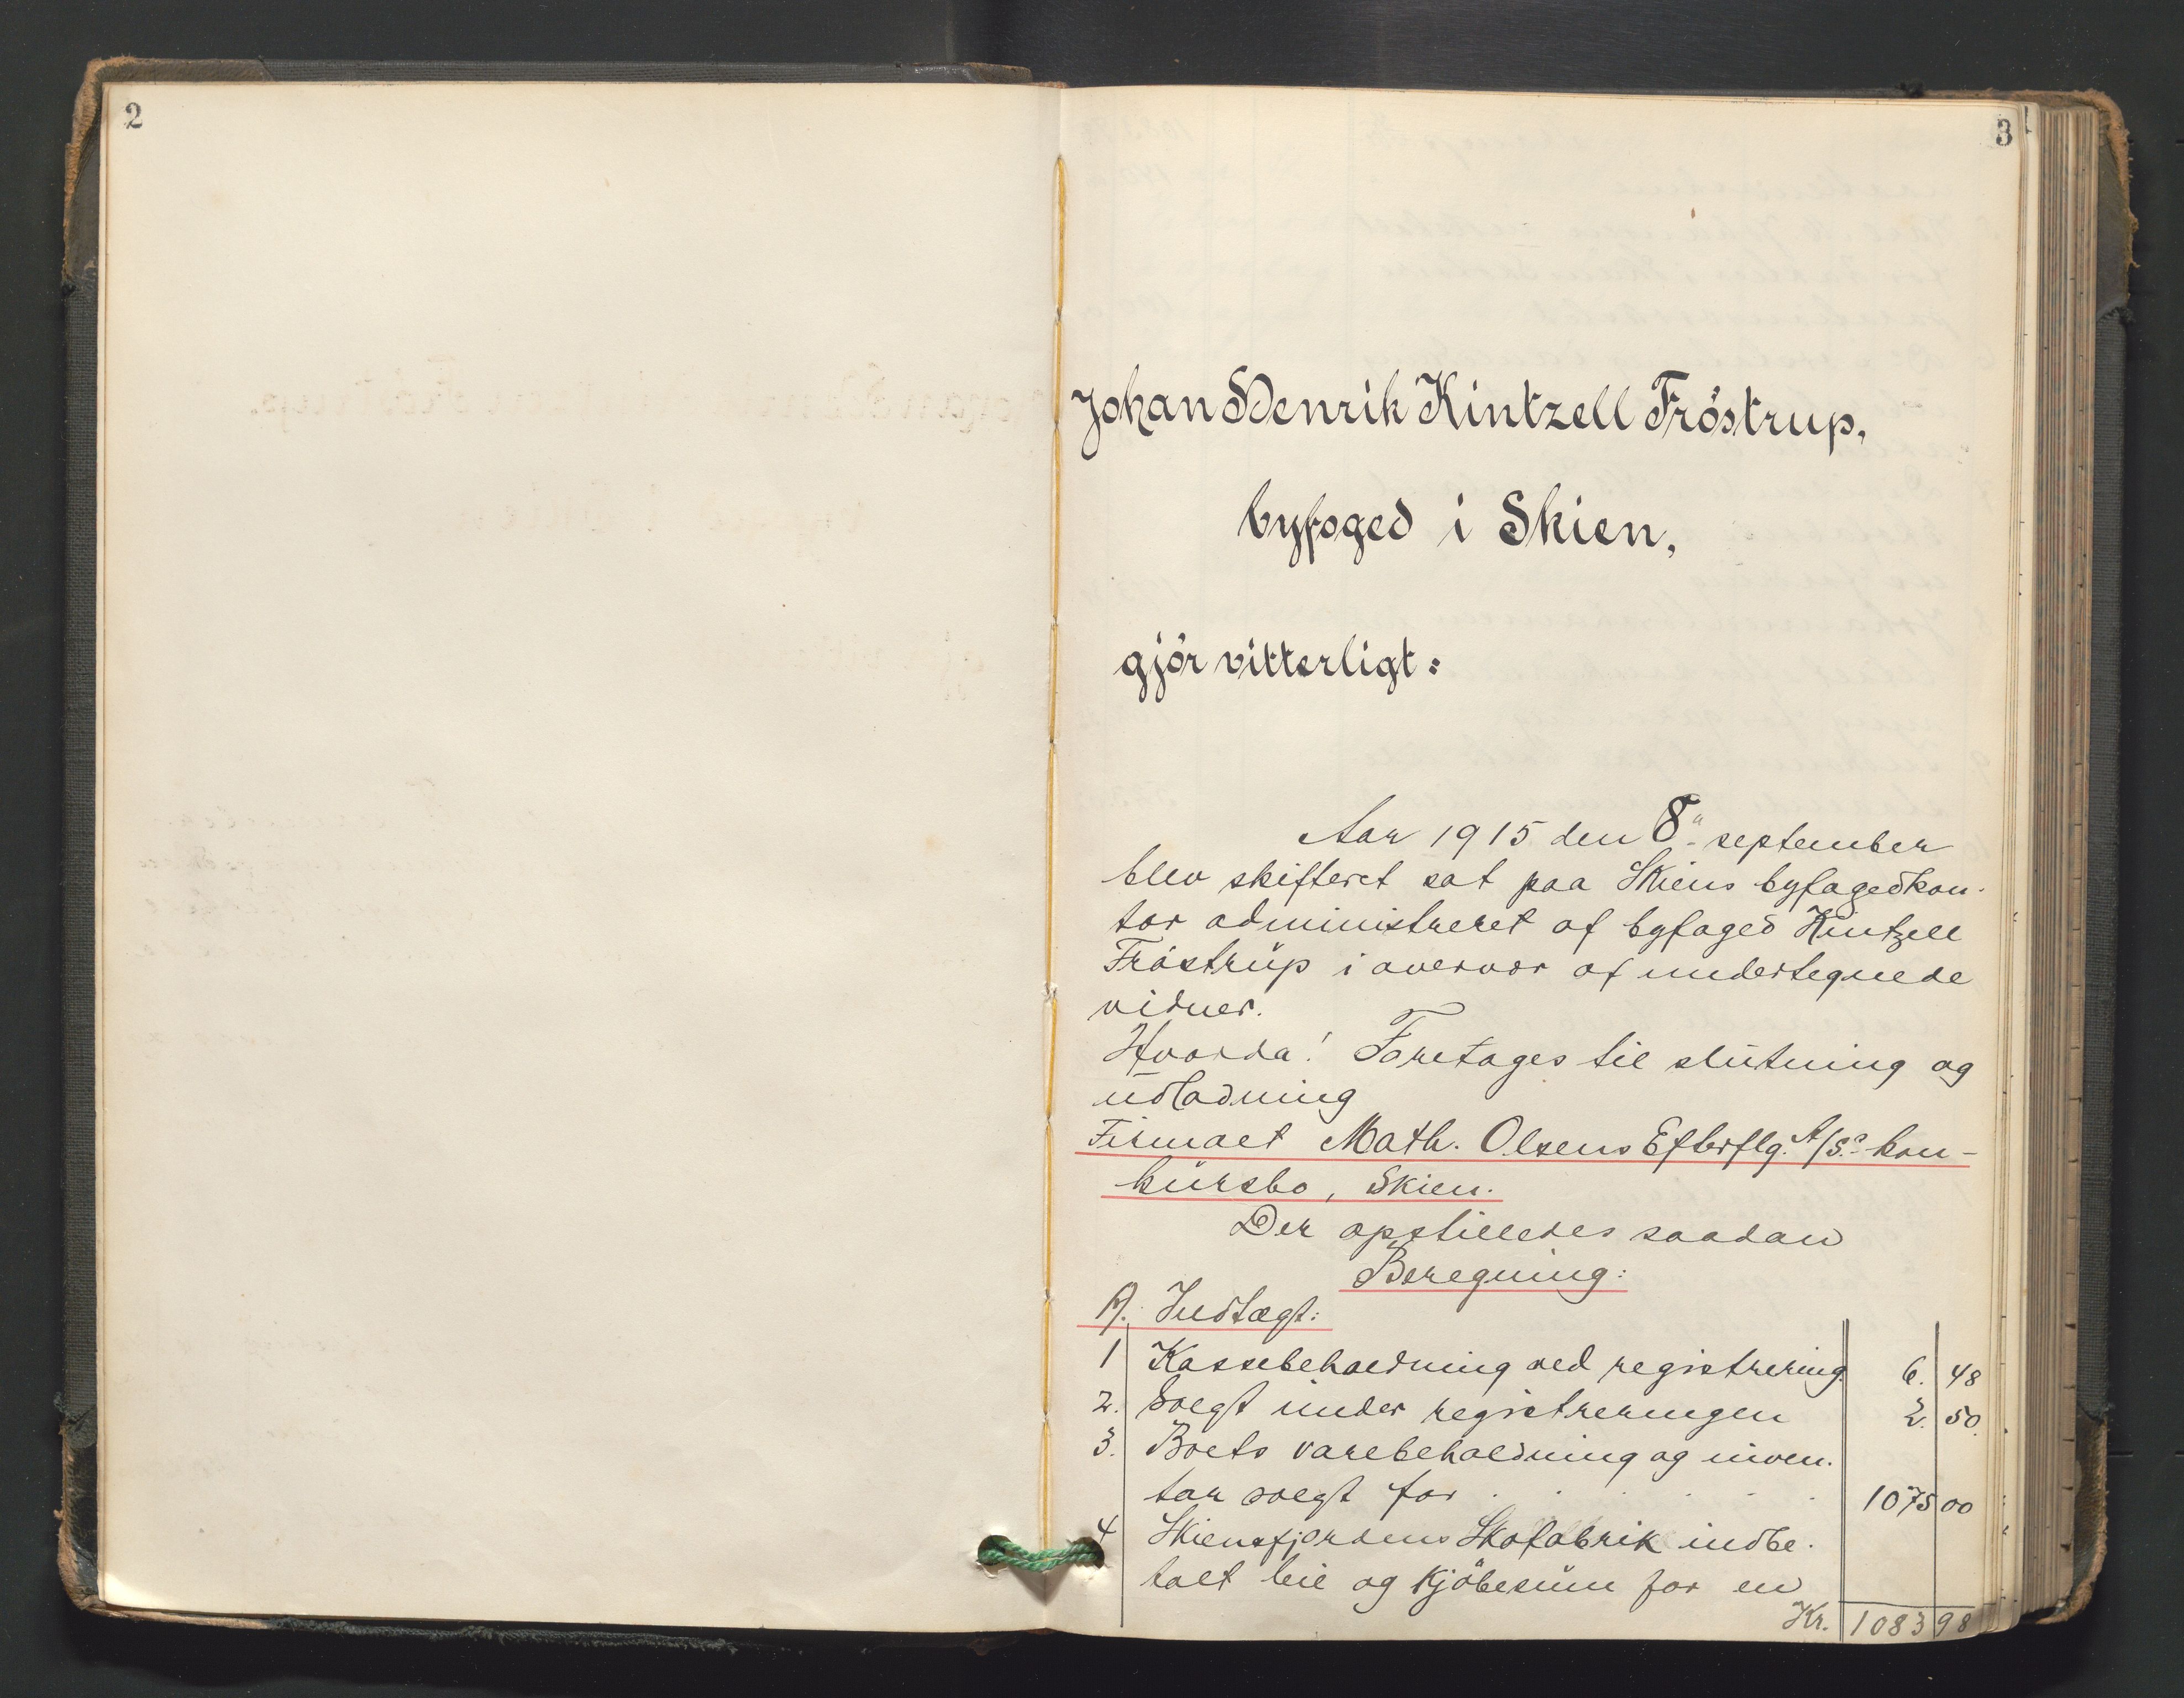 2
3
Johan Henrik Kintzell Fröstrup,
byfoged i Skien,
gjör vitterligt:
Aar 1915 den 8de september
blev skifteret sat paa Skiens byfogedkon-
tor administreret af byfoged Kintzell
Fröstrup i overvær af undertegnede
vidner.
Hvorda! Foretages til slutning og
udlodning
Firmaet Math. Olsens Efterflg. A/S.s kon-
kursbo, Skien.
Der opstilledes saadan
Beregning:
A). Indtægt:
1 Kassebeholdning ved registrering. 6. 48
2. Solgt under registreringen 2. 50.
3. Boets varebeholdning og inven-
tar solgt for . . . . . 1075 00
4 Skiensfjordens Skofabrik indbe-
talt leie og kjöbesum for en
Kr. 1083 98